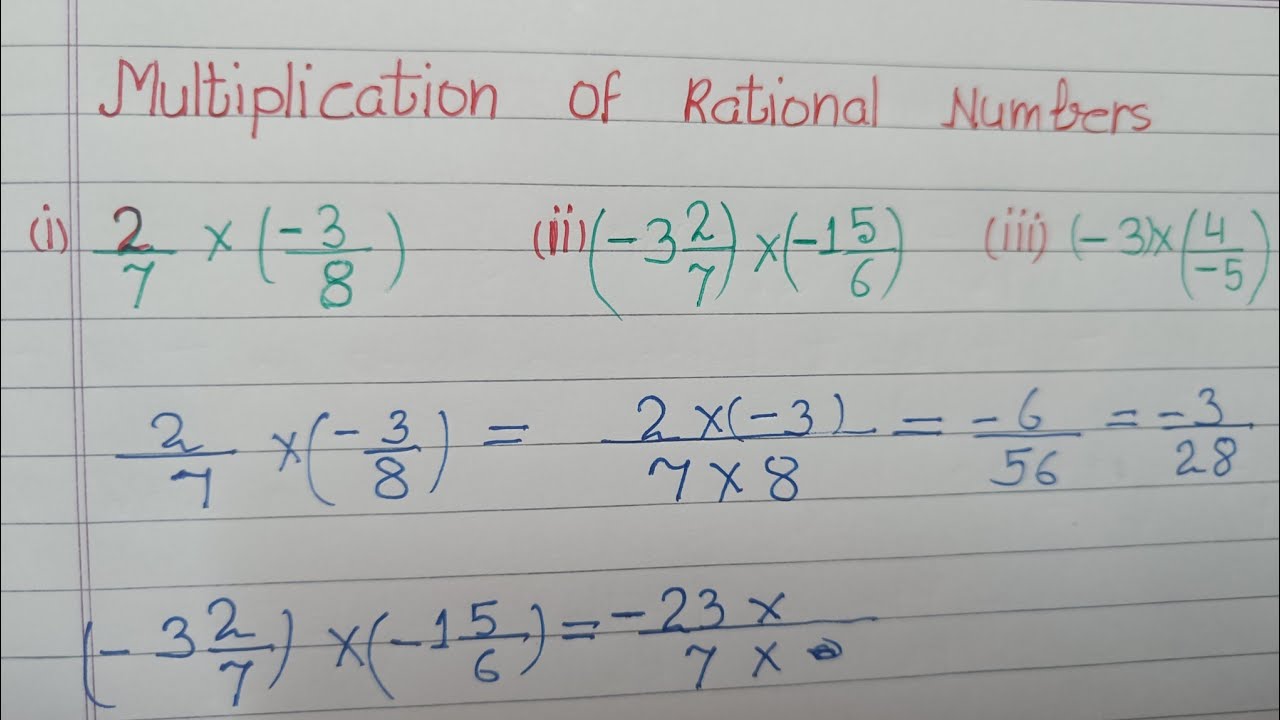 Multiplication Of Rational Numbers
(i) 2/7 × (-3/8) (ii) (-3 2/7) × (-1 5/6) (iii) (-3) × (4/-5)
2/7 × (-3/8) = 2 × (-3) / 7 × 8 = -6/56 = -3/28
(-3 2/7) × (-1 5/6) = -23 × / 7 ×